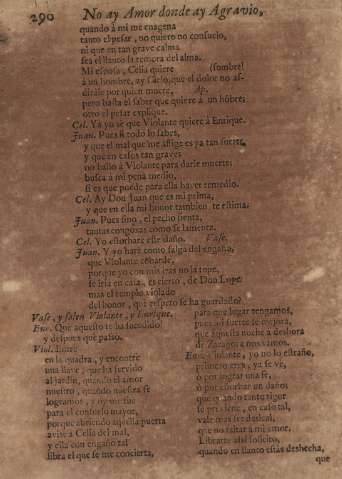 290 No ay Amor donde ay Agravio,
quando à mi me enagena
tanto el pesar, no quiero no consuelo,
ni que en tan grave calma
sea el llanto la remora del alma.
Mi esposa, Celia quiere (sombre!
à un hombre, ay Cielo, que el dolor no as-
dirasle por quien muere, Ap.
pero basta el saber que quiere à un hõbre;
otro el pesar explique.
Cel. Ya yo sè que Violante quiere à Enrique.
Juan. Pues si todo lo sabes,
y que el mal que me aflige es ya tan fuerte,
y que en casos tan graves
no hallo à Violante para darle muerte:
busca à mi pena medio,
si es que puede para ella haver remedio.
Cel. Ay Don Juan que es mi palma,
y que en ella mi honor tambien te estima.
Juan. Pues sino, el pecho sienta,
tantas congoxas como se lamenta.
Cel. Yo estorbarè este daño. Vase.
Juan. Y yo harè como salga del engaño,
que Violante cobarde,
porque yo con mis iras no la tope,
se iria en casa, es cierto, de Don Lope
mas el templo violado
del honor, què respeto se ha guardado?
Vase, y salen Violante, y Enrique.
Enr. Que aquesto te ha sucedido
y despues que passo.
Viol. Entre
en la quadra, y encontre
una llave, que ha servido
al jardin, quando el amor
nuestro, quando nuestra se
logramos, y oy me fue
para el consuelo mayor,
porque abriendo aquella puerta
avisè à Celia del mal,
y ella con engaño tal
libra el que se me concierta,
para que lugar tengamos,
pues mi suerte se mejora,
que aquesta noche à deshora
de Zaragoza nos vamos.
Enr. Violante, yo no lo estraño,
primero eres, ya se ve,
ò por lograr una fè,
ò por escusar un daño;
que quando tanto rigor
se previene, en caso tal,
vale mas ser desleal,
que no faltar à mi amor.
Librarte assi solicito,
quando en llanto estàs deshecha,
que